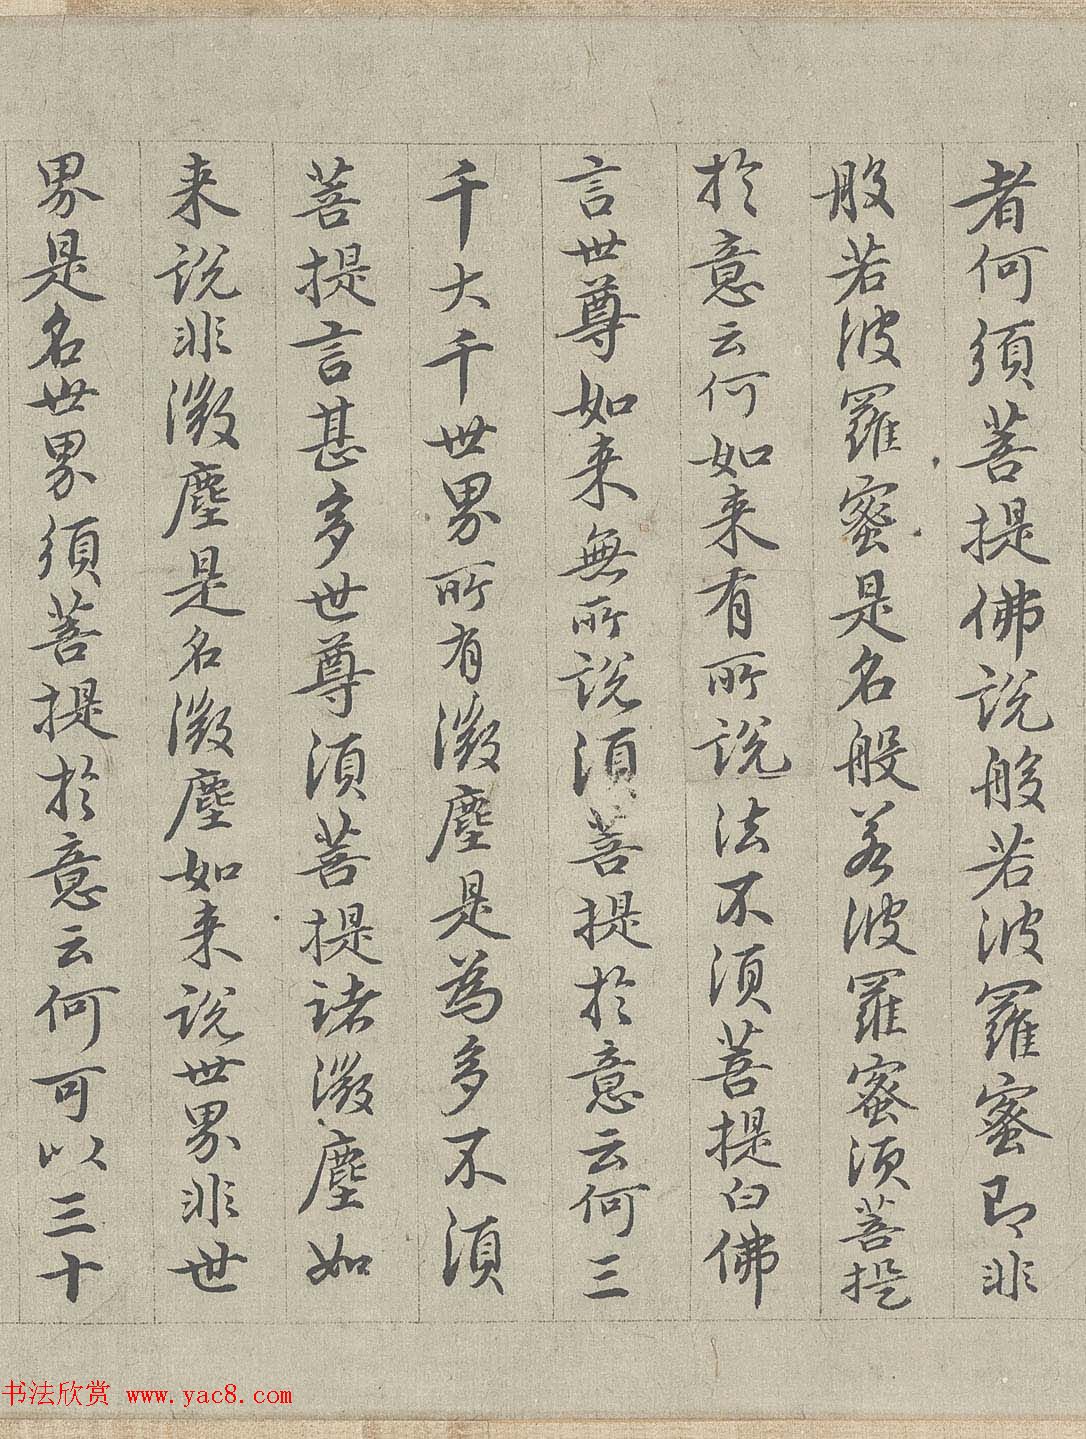 者何須菩提佛說般若波羅蜜即非
般若波羅蜜是名般若波羅蜜須菩提
於意云何如来有所說法不須菩提白佛
言世尊如来無所說須菩提於意云何三
千大千世界所有微塵是為多不須
菩提言甚多世尊須菩提諸微塵如
来說非微塵是名微塵如来說世界非世
界是名世界須菩提於意云何可以三十
书法欣赏 www.yac8.com